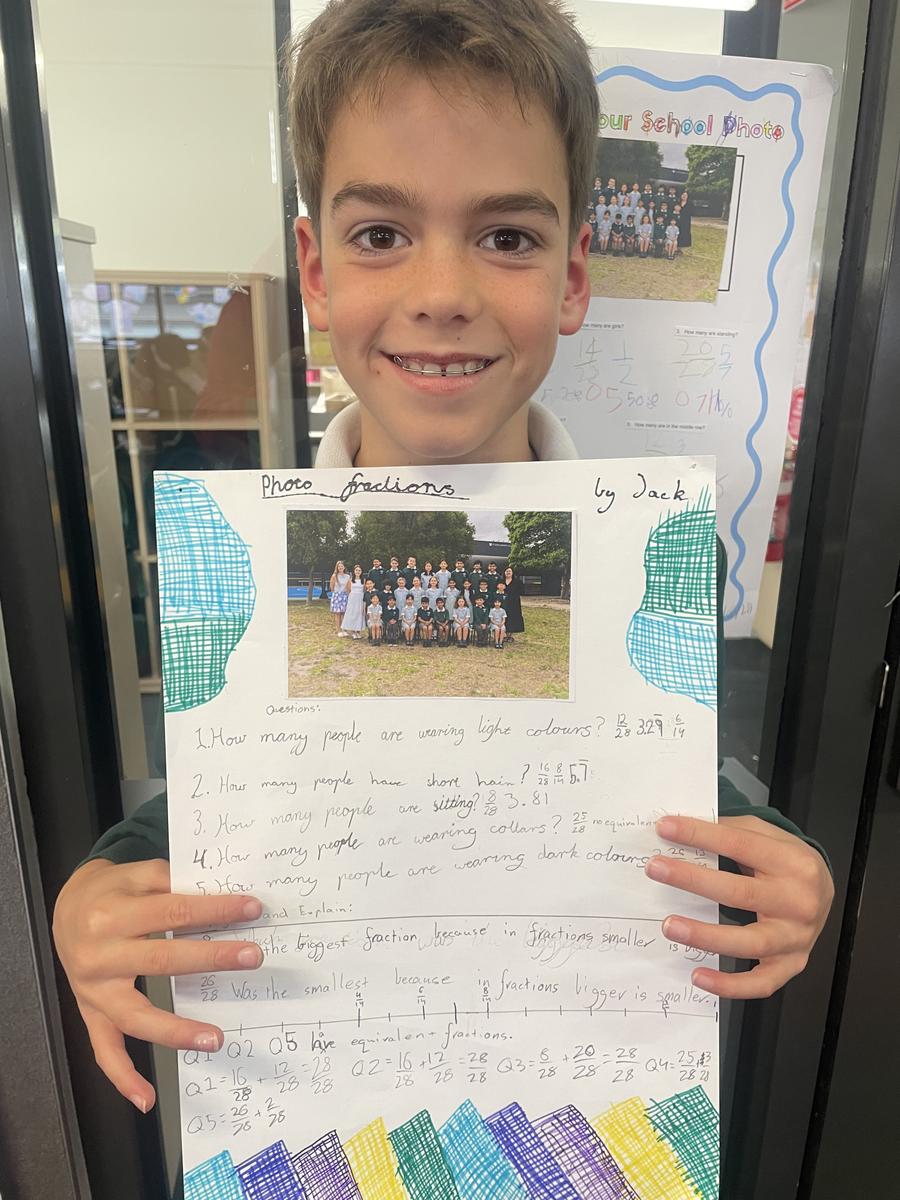 our School Photo
how many are girls?
3. How many are standing?
14 1
28 2
20 5
28 7
5. How many are in the middle row?
Photo fractions by Jack
Questions:
1. How many people are wearing light colours? 12/28 3.29 6/14
2. How many people have short hair? 16/28 8/14 5.7
3. How many people are sitting? 8/28 3.81
4. How many people are wearing collars? 25/28 no equivalen
5. How many people are wearing dark colours? 26
and Explain:
the biggest fraction because in fractions smaller is bigge
26/28 Was the smallest because in fractions bigger is smaller.
4/14 6/14 8/14
Q1 Q2 Q5 have equivalent fractions.
Q1=16/28 + 12/28 = 28/28 Q2=16/28 + 12/28 = 28/28 Q3=8/28 + 20/28 = 28/28 Q4=25/28 + 3/28
Q5=26/28 + 2/28